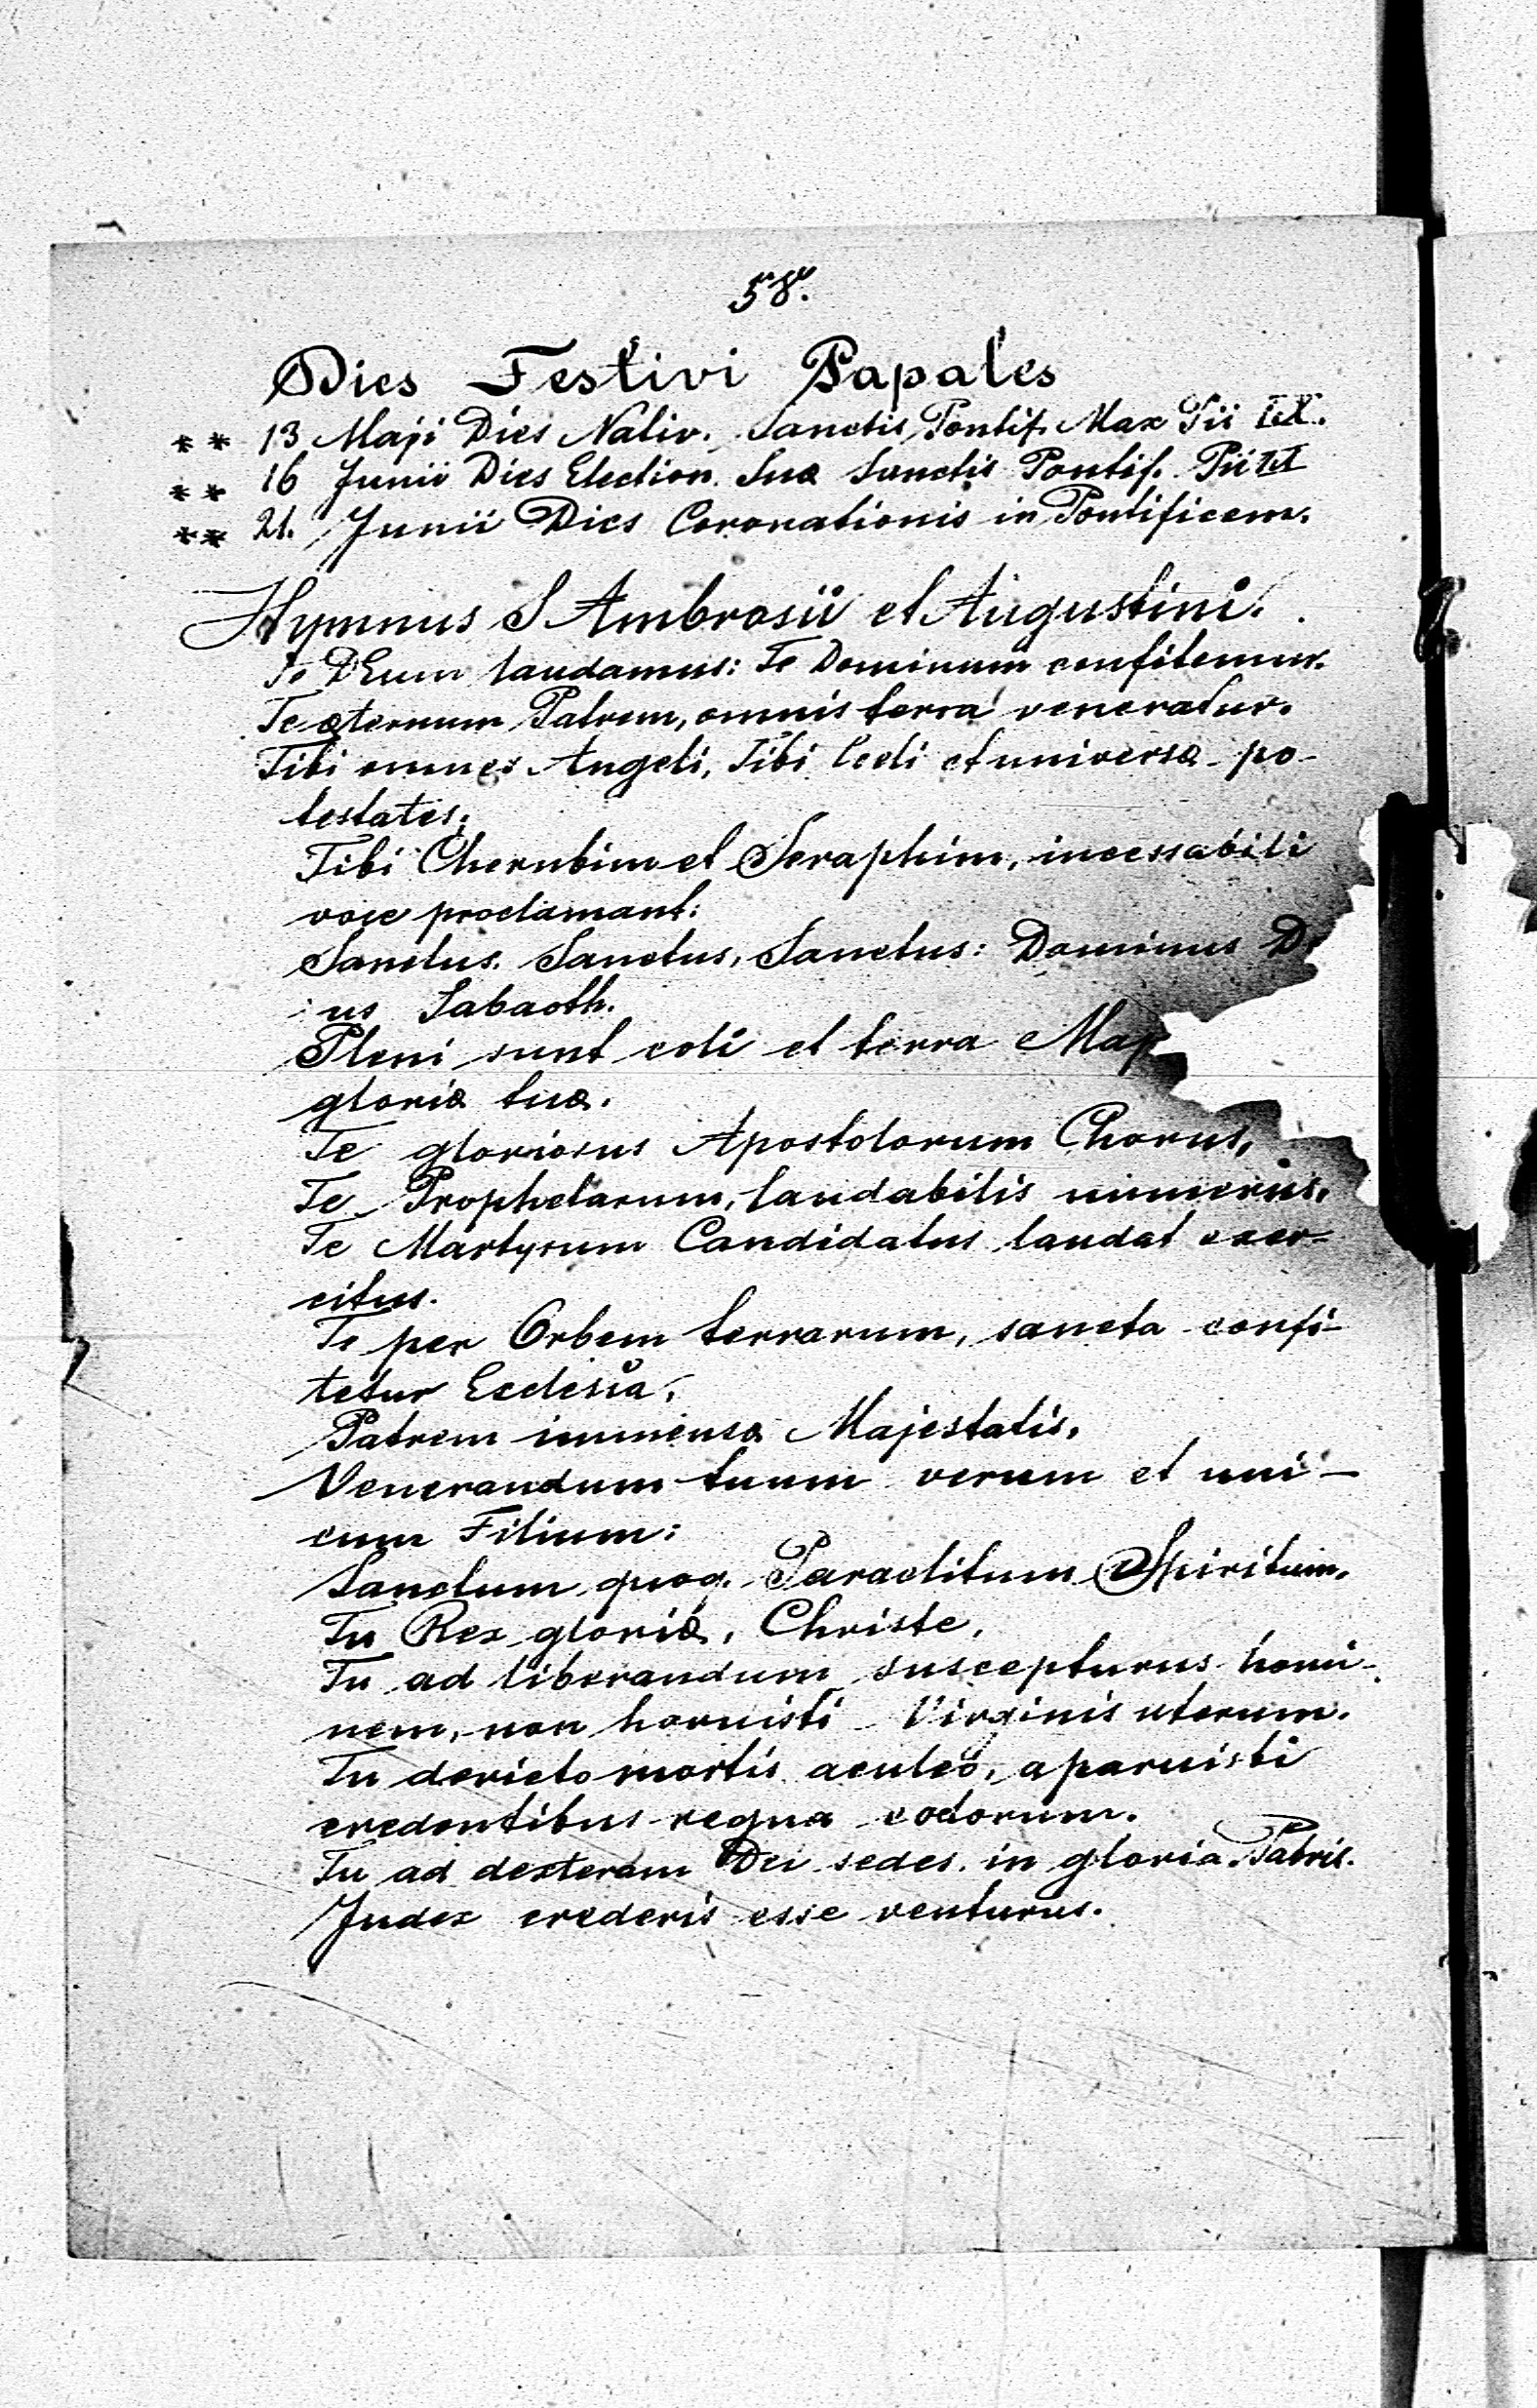 58.
Dies Festivi Papales
** 13 Maji Dies Nativ. Sanctis Pontif. Max Pii IX.
** 16 Junii Dies Election. Suæ Sanctis Pontif. Pii IX
** 21. Junii Dies Coronationis in Pontificem.
Hymnus S Ambrosii et Augustini.
Te DEum laudamus: Te Dominum confitemur.
Te æternum Patrem, omnis terra veneratur.
Tibi omnes Angeli, Tibi Cœli et universæ po-
testates;
Tibi Cherubim et Seraphim, incessabili
voce proclamant:
Sanctus. Sanctus, Sanctus: Dominus De
us Sabaoth.
Pleni sunt cœli et terra Maj
gloriæ tuæ.
Te gloriosus Apostolorum Chorus,
Te Prophetarum, laudabilis numerus,
Te Martyrum Candidatus laudat exer-
citus.
Te per Orbem terrarum, sancta confi-
tetur Ecclesia,
Patrem immensæ Majestatis,
Venerandum tuum verum et uni-
cum Filium:
Sanctum quoq. Paraclitum Spiritum.
Tu Rex gloriæ, Christe,
Tu ad liberandum suscepturus homi-
nem, non horuisti Virginis uterum.
Tu devicto mortis aculeo, aparuisti
credentibus regna cœlorum.
Tu ad dexteram Dei sedes in gloria Patris.
Judex crederis esse venturus.